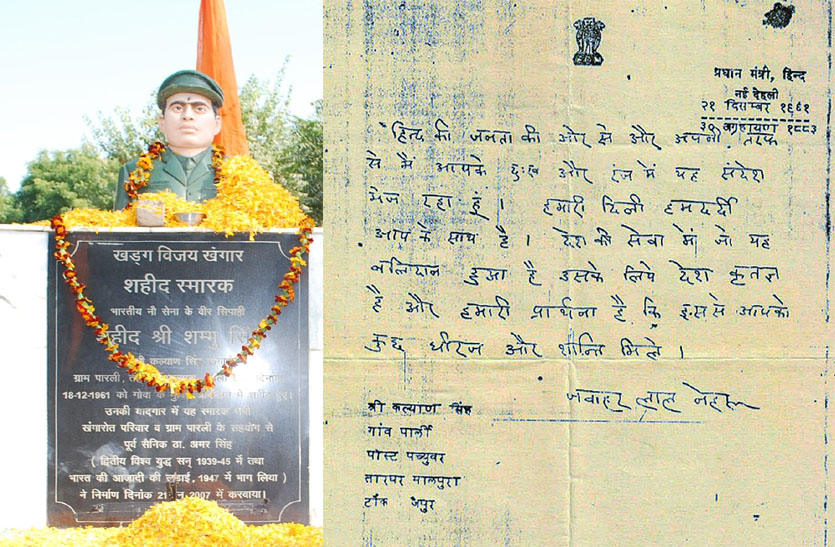 खड़ग विजय खंगार
शहीद स्मारक
भारतीय नौ सेना के वीर सिपाही
शहीद श्री शम्भु
कल्याण सिंह
ग्राम पारली,
18-12-1961 को गोवा के
उनकी यादगार में यह स्मारक
खंगारोत परिवार व ग्राम पारली के सहयोग से
पूर्व सैनिक ठा. अमर सिंह
( द्वितीय विश्व युद्ध सन् 1939-45 में तथा
भारत की आजादी की लड़ाई, 1947 में भाग लिया )
ने निर्माण दिनांक 2007 में करवाया।
प्रधान मंत्री, हिन्द
नई देहली
२१ दिसम्बर १९६१
३० अग्रहायण १८८३
हिन्द की जनता की ओर से और अपनी तरफ
से मैं आपके दुःख और रंज में यह संदेश
भेज रहा हूं । हमारी दिली हमदर्दी
आप के साथ है । देश की सेवा में जो यह
बलिदान हुआ है उसके लिये देश कृतज्ञ
है और हमारी प्रार्थना है कि इस से आपको
कुछ धीरज और शान्ति मिले ।
जवाहर लाल नेहरू
श्री कल्याण सिंह
गांव पार्ली
पोस्ट पच्युवर
तारघर मालपुरा
टौंक